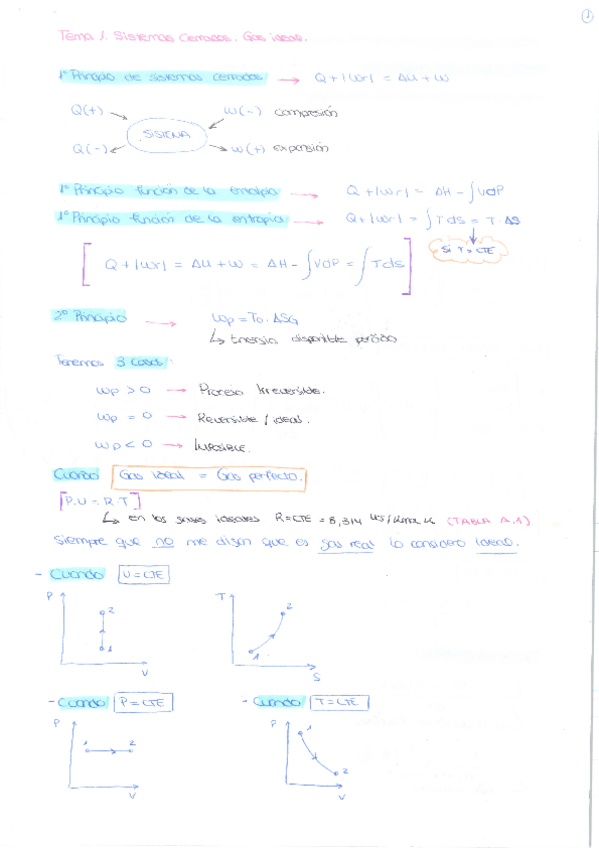 1
Tema 1. Sistemas Cerrados. Gas ideal.
1º Principio de sistemas cerrados → Q + |Wr| = ΔU + W
Q(+) W(-) compresión
SISTEMA
Q(-) W(+) expansión
1º Principio función de la entalpía → Q + |Wr| = ΔH - ∫VdP
1º Principio función de la entropía → Q + |Wr| = ∫Tds = T·ΔS
Si T = CTE
[Q + |Wr| = ΔU + W = ΔH - ∫VdP = ∫Tds]
2º Principio → Wp = To·ΔSG
↳ Energía disponible perdida
Tenemos 3 casos:
Wp > 0 → Proceso Irreversible.
Wp = 0 → Reversible / ideal.
Wp < 0 → Imposible.
Cuando Gas ideal = Gas perfecto.
[P.V = R.T]
↳ en los gases ideales R=CTE = 8,314 KJ/Kmol K (TABLA A.1)
Siempre que no me digan que es gas real lo considero ideal.
- Cuando V = CTE
P 2 1 V
T 2 1 S
- Cuando P = CTE - Cuando T = CTE
P 1 2 V
P 1 2 V